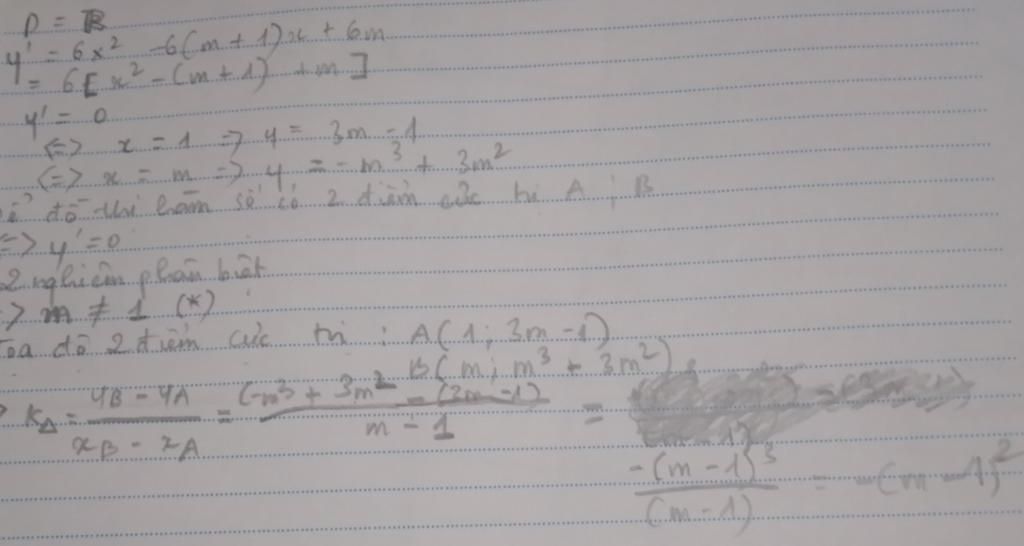 D = R
y' = 6x² - 6(m + 1)x + 6m
= 6[x² - (m + 1) + m]
y' = 0
<=> x = 1 => y = 3m - 1
<=> x = m => y = -m³ + 3m²
đồ thị hàm số có 2 điểm cực trị A ; B
=> y' = 0
2 nghiệm phân biệt
=> m ≠ 1 (*)
Tọa độ 2 điểm cực trị : A(1 ; 3m - 1)
B(m ; m³ + 3m²)
K_Δ = (y_B - y_A)/(x_B - x_A) = (-m³ + 3m² - (3m - 1))/(m - 1) =
-(m - 1)³/(m - 1) = -(m - 1)²